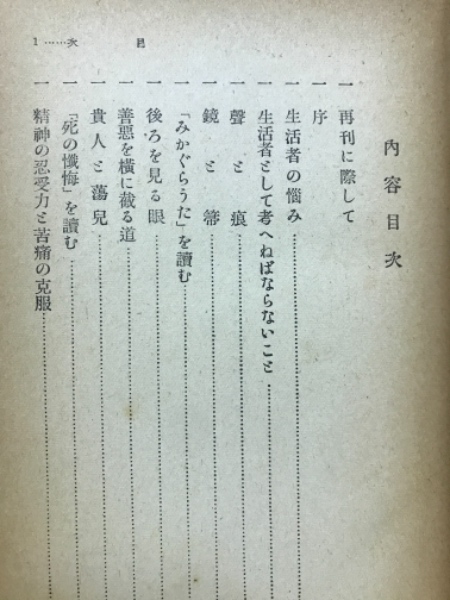 1……次 目
內容目次
一 再刊に際して
一 序
一 生活者の惱み……………………
一 生活者として考へねばならないこと……………………
一 聲と痕……………………
一 鏡と箒……………………
一 「みかぐらうた」を讀む……………………
一 後ろを見る眼……………………
一 善惡を橫に截る道……………………
一 貴人と蕩兒……………………
一 「死の懺悔」を讀む……………………
一 精神の忍受力と苦痛の克服……………………